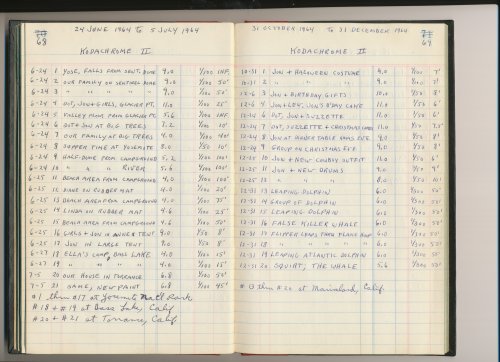 24 JUNE 1964 TO 5 JULY 1964
68
KODACHROME II
6-24 1 YOSE. FALLS FROM SENT. DOME 9.0 1/100 INF.
6-24 2 OUR FAMILY ON SENTINEL DOME 9.0 1/100 50'
6-24 3 " " " " " 9.0 1/100 50'
6-24 4 DOT, JON + GIRLS, GLACIER PT. 11.0 1/100 25'
6-24 5 VALLEY FLOOR FROM GLACIER PT. 5.6 1/100 INF
6-24 6 DOT + JON AT BIG TREES 1/100 10'
6-24 7 OUR FAMILY AT BIG TREES 4.0 1/100 40'
6-24 8 SUPPER TIME AT YOSEMITE 8.0 1/50 10'
6-24 9 HALF-DOME FROM CAMPGROUND 5.2 1/100 100'
6-24 10 " " " RIVER 5.6 1/100 100'
6-25 11 BEACH AREA FROM CAMPGROUND 4.0 1/100 100'
6-25 12 DIANE ON RUBBER MAT 4.0 1/100 20'
6-25 13 BEACH AREA FROM CAMPGROUND 4.0 1/100 75'
6-25 14 LINDA ON RUBBER MAT 4.6 1/100 25'
6-25 15 BEACH AREA FROM CAMPGROUND 4.6 1/100 50'
6-25 16 GIRLS + JON IN TENT 9.0 1/50 8'
6-25 17 JON IN LARGE TENT 9.0 1/50 8'
6-27 18 ELLA'S CAMP, BASS LAKE 4.0 1/100 15'
6-27 19 " " " " 4.0 1/100 15'
7-5 20 OUR HOUSE IN TORRANCE 6.8 1/100 50'
7-5 21 NEW PAINT 6.8 1/100 45'
#1 thru #17 at Yosemite Nat'l Park
#18 + #19 at Bass Lake, Calif
#20 + #21 at Torrance, Calif.
31 OCTOBER 1964 TO 31 DECEMBER 1964
69
KODACHROME II
10-31 1 JON + HALOWEEN COSTUME 9.0 1/100 7'
10-31 2 " " " 9.0 1/100 7'
12-6 3 JON + BIRTHDAY GIFTS 10.0 1/50 8'
12-6 4 JON + JON'S B'DAY CAKE 11.0 1/50 6'
12-6 DOT + SUZZETTE 11.0 1/50 6'
12-24 7 DOT, SUZZETTE + CHRISTMAS 11.0 1/50 7.5'
12-24 8 JON AT TABLE XMAS EVE 9.0 1/50 8'
12-24 9 GROUP ON CHRISTMAS EVE 9.0 1/50 8'
12-25 10 JON + NEW COWBOY OUTFIT 11.0 1/50 6'
12-25 11 JON + NEW DRUMS 9.0 1/50 9'
12-25 12 " " " 8.0 1/50 10'
12-31 13 LEAPING DOLPHIN 6.0 50'
12-31 14 GROUP OF DOLPHIN 6.0 50'
12-31 15 LEAPING DOLPHIN 6.0 50'
12-31 16 FALSE KILLER WHALE 6.0 50'
12-31 17 FLIPPER LEAPS THRU FLAME HOOP 6.0 50'
12-31 18 " " " " 6.0 50'
12-31 19 LEAPING ATLANTIC DOLPHIN 6.0 55'
12-31 20 SQUIRT, THE WHALE 5.6 50'
thru #20 at Marineland, Calif.